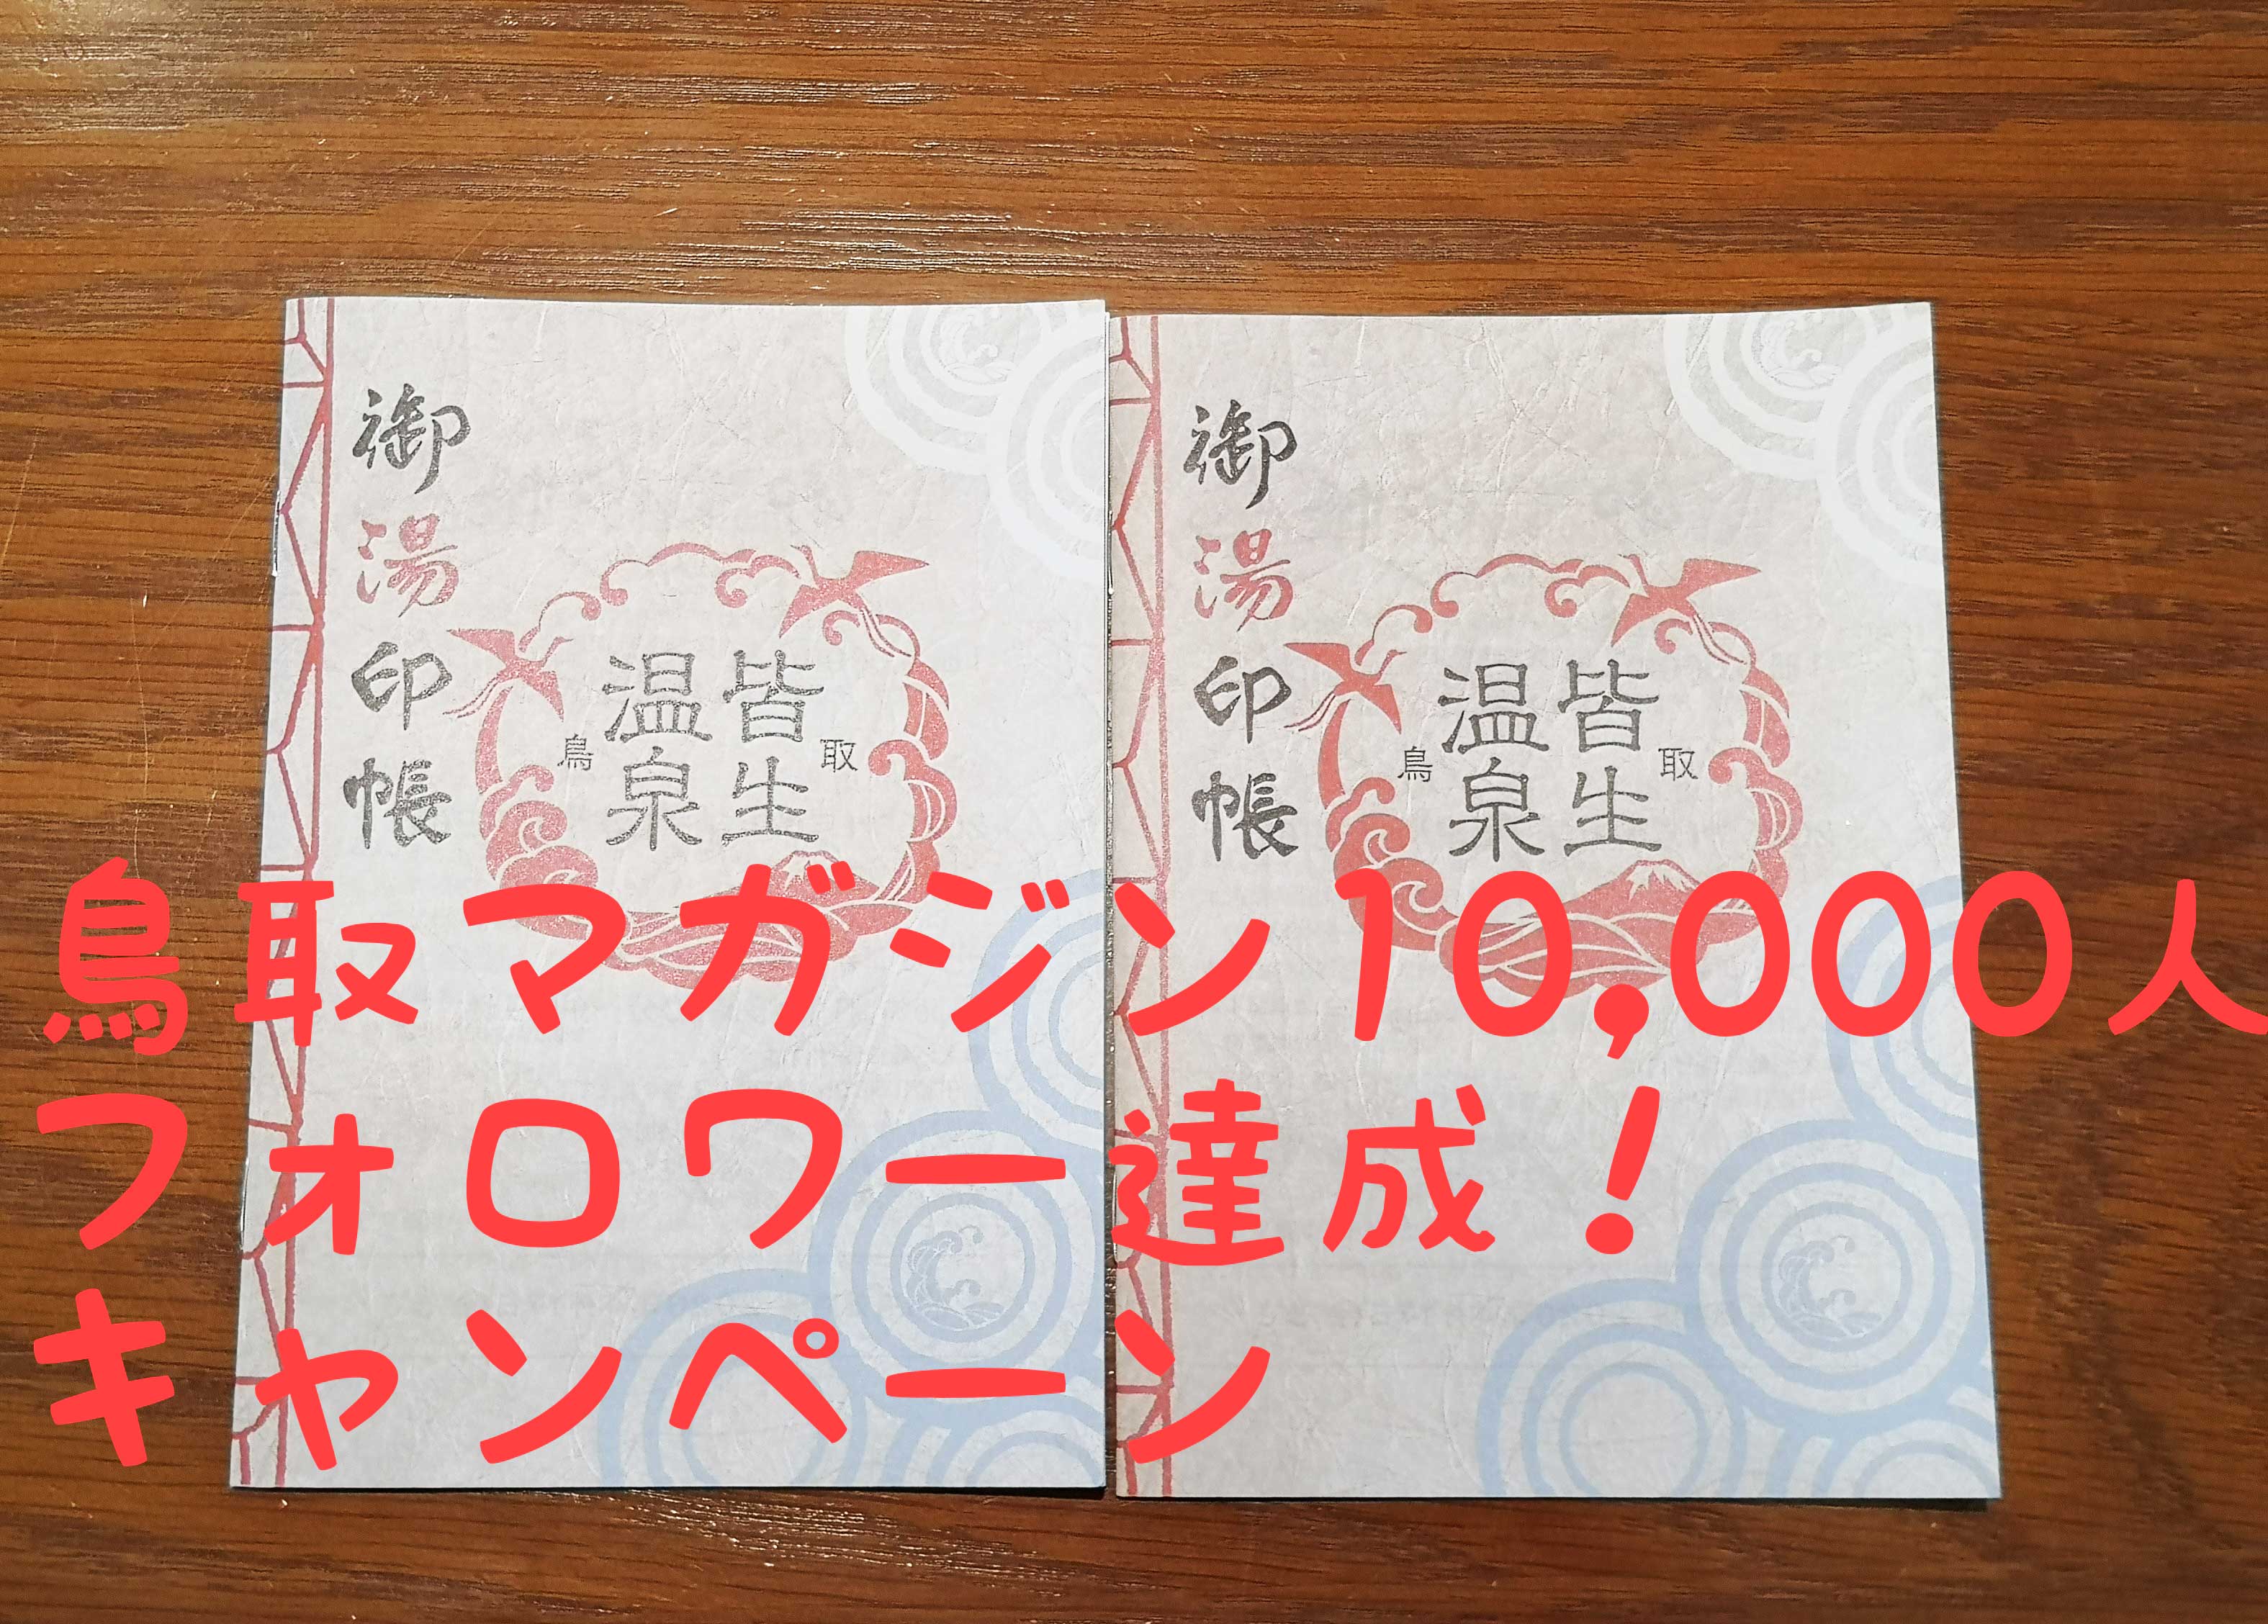 御湯印帳
皆生
温泉
鳥取
御湯印帳
皆生
温泉
鳥取
鳥取マガジン10,000人
フォロワー達成！
キャンペーン